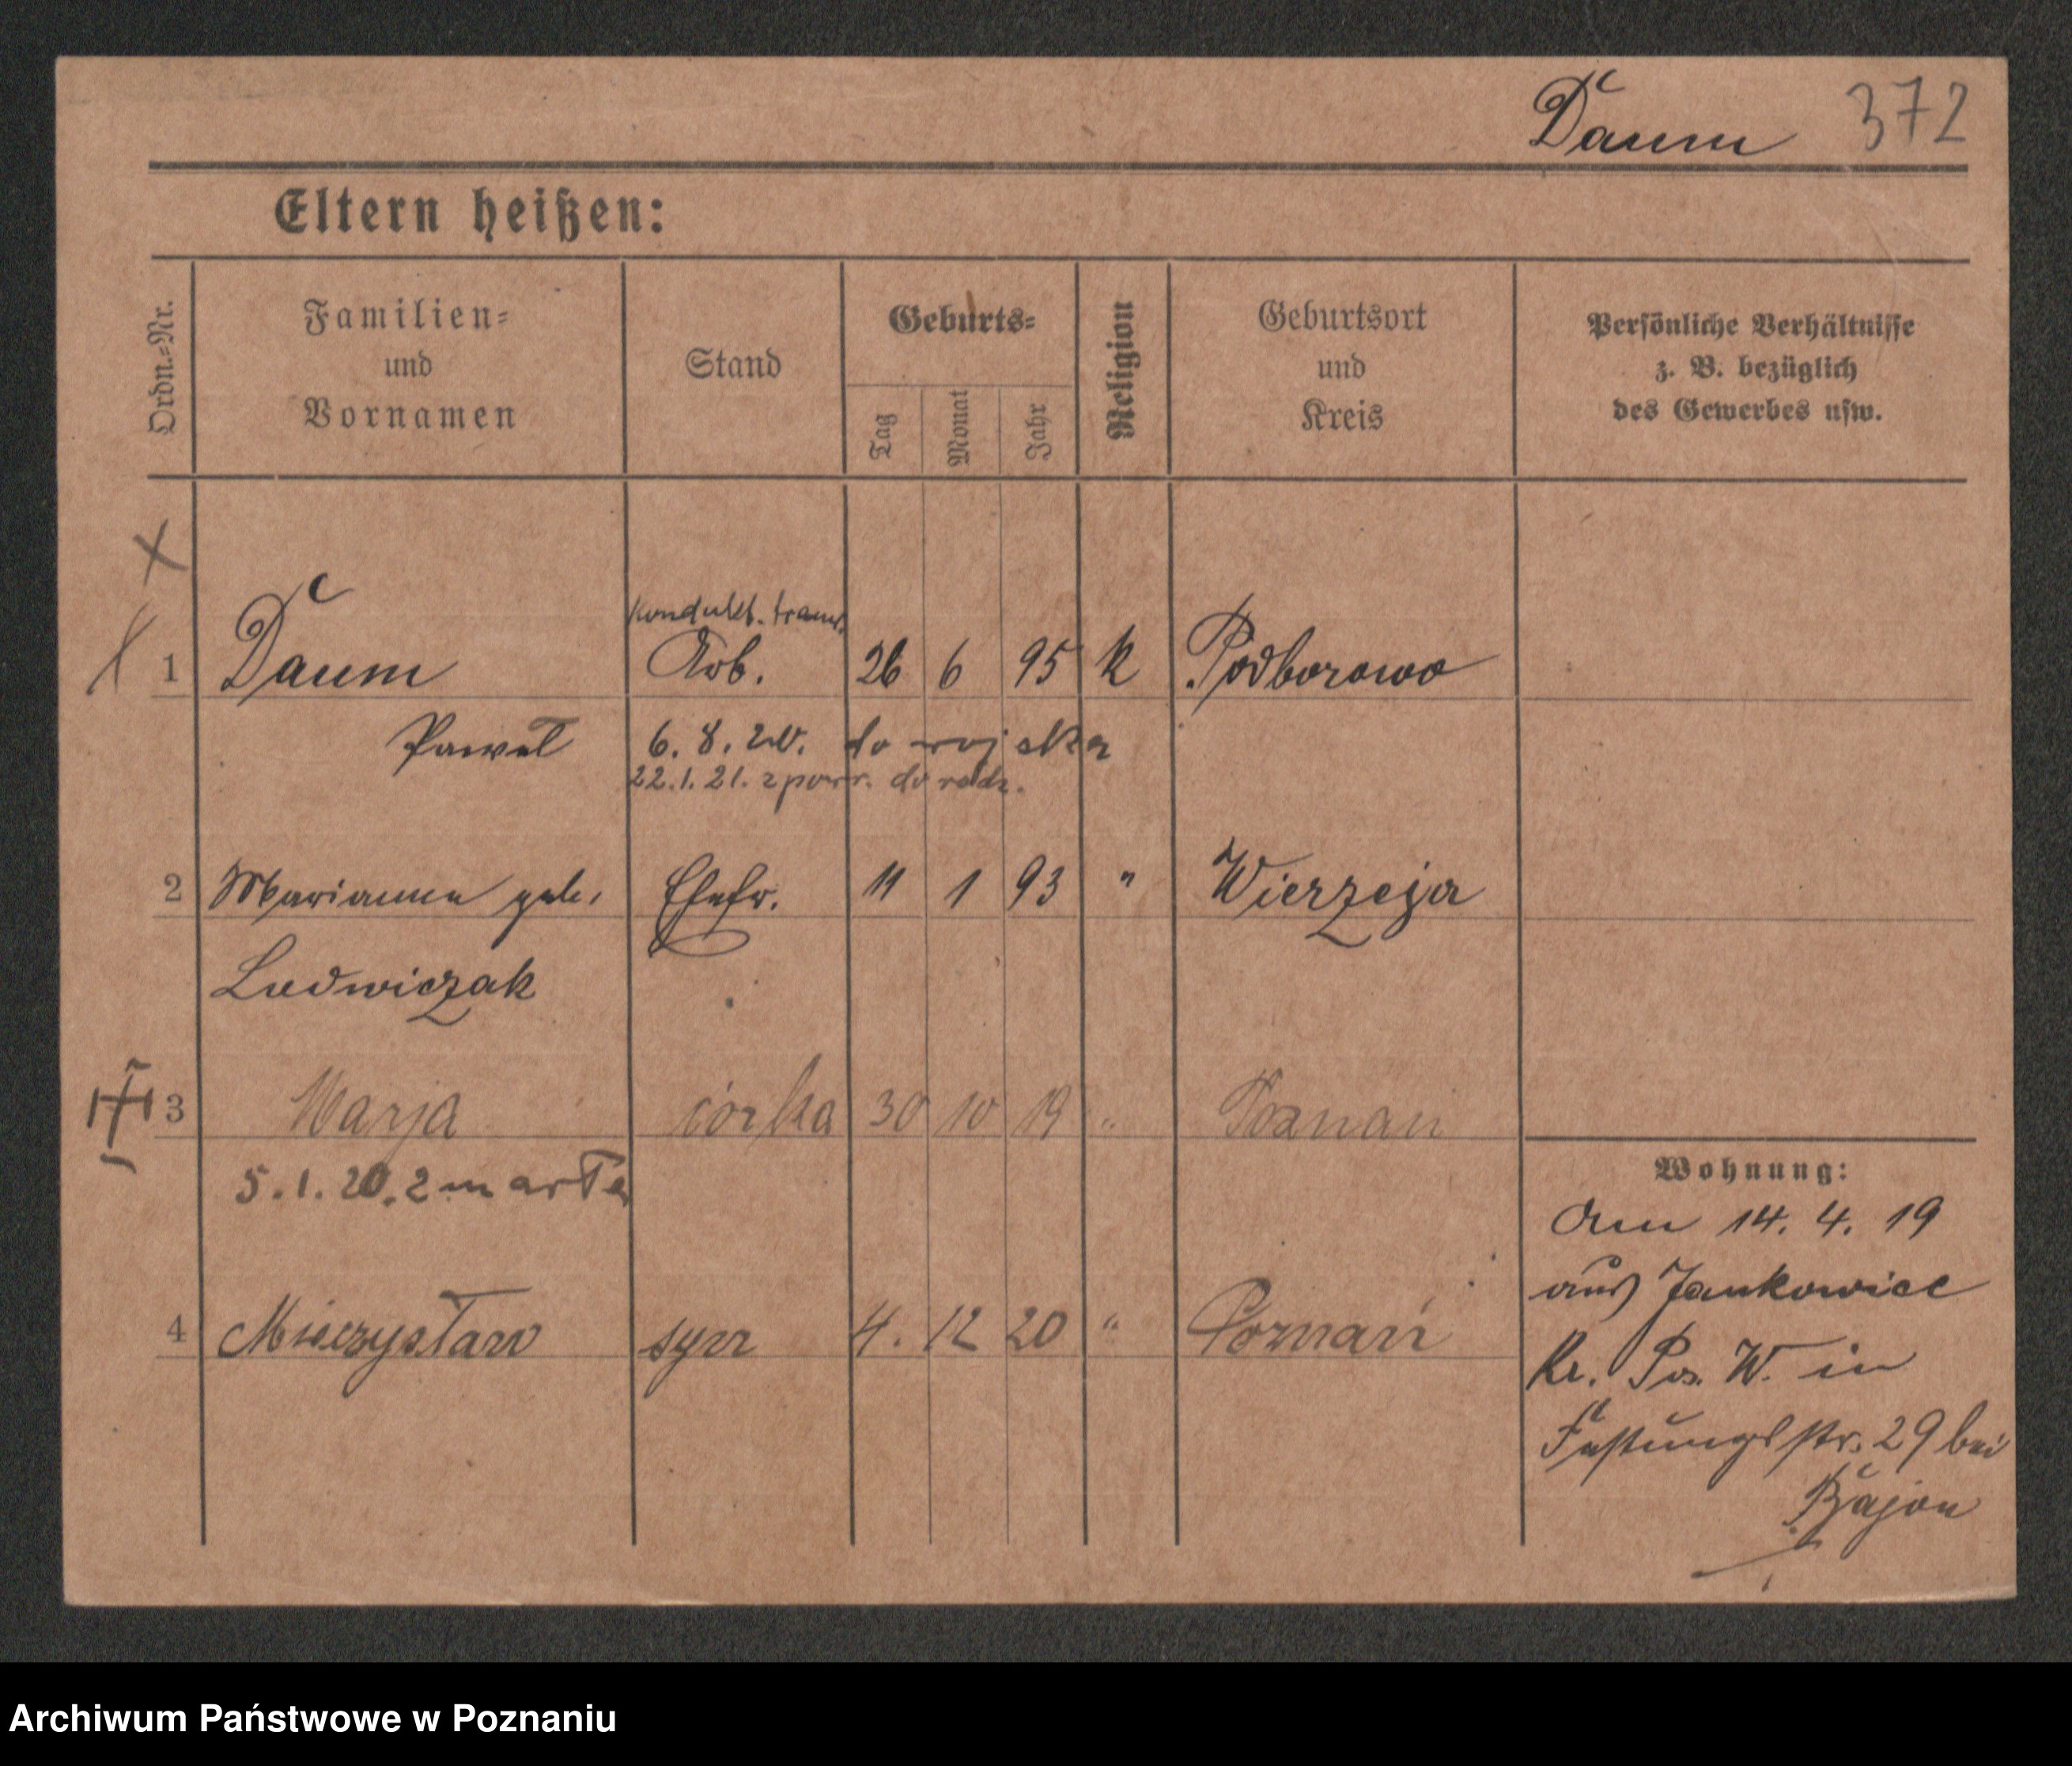 Daum 372
Eltern heißen:
Ordn.=Nr.
Familien=
und
Vornamen
Stand
Geburts=
Tag
Monat
Jahr
Religion
Geburtsort
und
Kreis
Persönliche Verhältnisse
z. B. bezüglich
des Gewerbes usw.
kondukt. tramw.
1 Daum Arb. 26 6 95 k Podborowo
Paweł 6. 8. 20. do wojska
22.1.21. z powr. do rodz.
2 Marianna geb. Ehefr. 11 1 93 " Wierzeja
Ludwiczak
3 Marja córka 30 10 19 " Poznań
5.1.20. zmarła
4 Mieczysław syn 4. 12 20 " Poznań
Wohnung:
Am 14. 4. 19
aus Jankowice
Kr. Pos. W. in
Festungsstr. 29 bei
Bajon
Archiwum Państwowe w Poznaniu